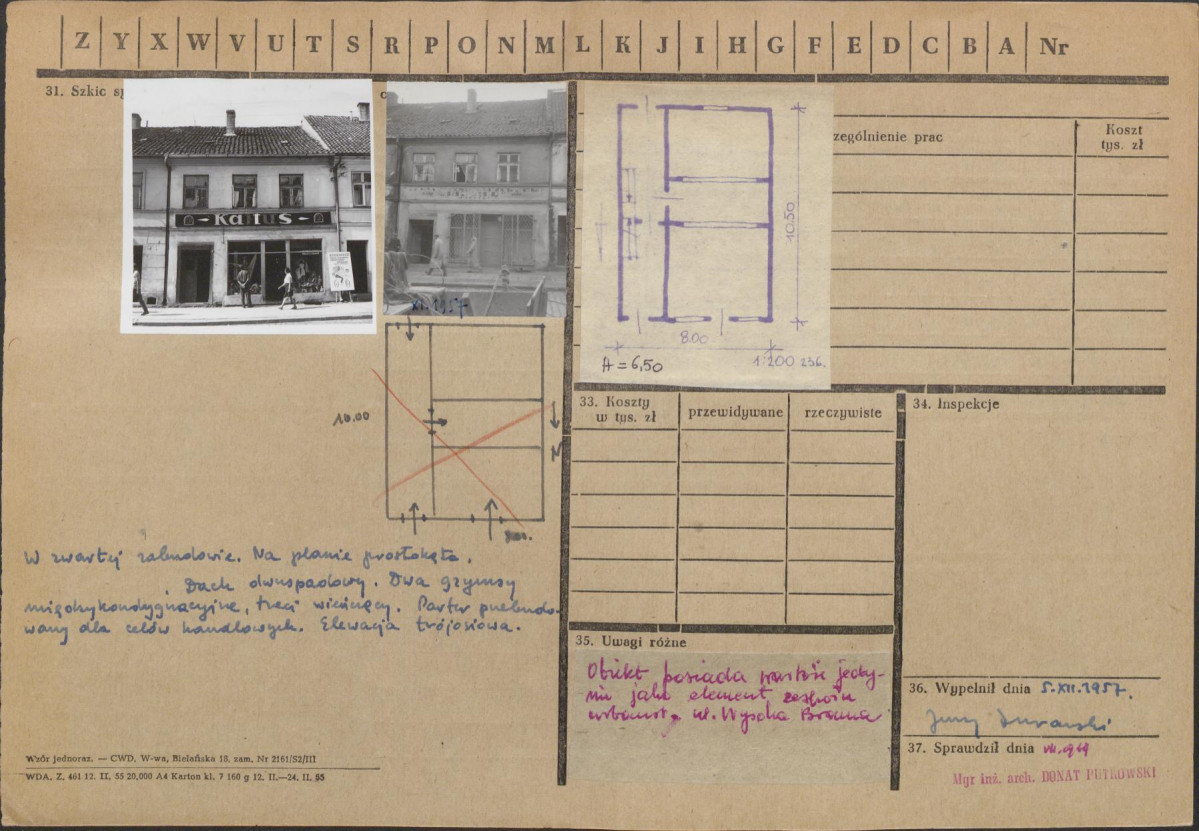 Z Y X W V U T S R P O N M L K J I H G F E D C B A Nr
31. Szkic
KAJTUŚ
XI.1957
10.50
8.00
A = 6,50
1:200 236.
10.00
N
W zwartej zabudowie. Na planie prostokąta.
Dach dwuspadowy. Dwa gzymsy
międzykondygnacyjne, trzeci wieńczący. Parter przebudo-
wany dla celów handlowych. Elewacja trójosiowa.
Wzór jednoraz. — CWD, W-wa, Bielańska 18, zam. Nr 2161/S2/III
WDA. Z. 461 12. II. 55 20,000 A4 Karton kl. 7 160 g 12. II.—24. II. 55
zególnienie prac
Koszt
tys. zł
33. Koszty
w tys. zł
przewidywane
rzeczywiste
34. Inspekcje
35. Uwagi różne
Obiekt posiada wartość jedy-
nie jako element zespołu
urbanist. ul. Wysoka Brama
36. Wypełnił dnia 5.XII.1957.
Jerzy
37. Sprawdził dnia
Mgr inż. arch. DONAT PUTKOWSKI